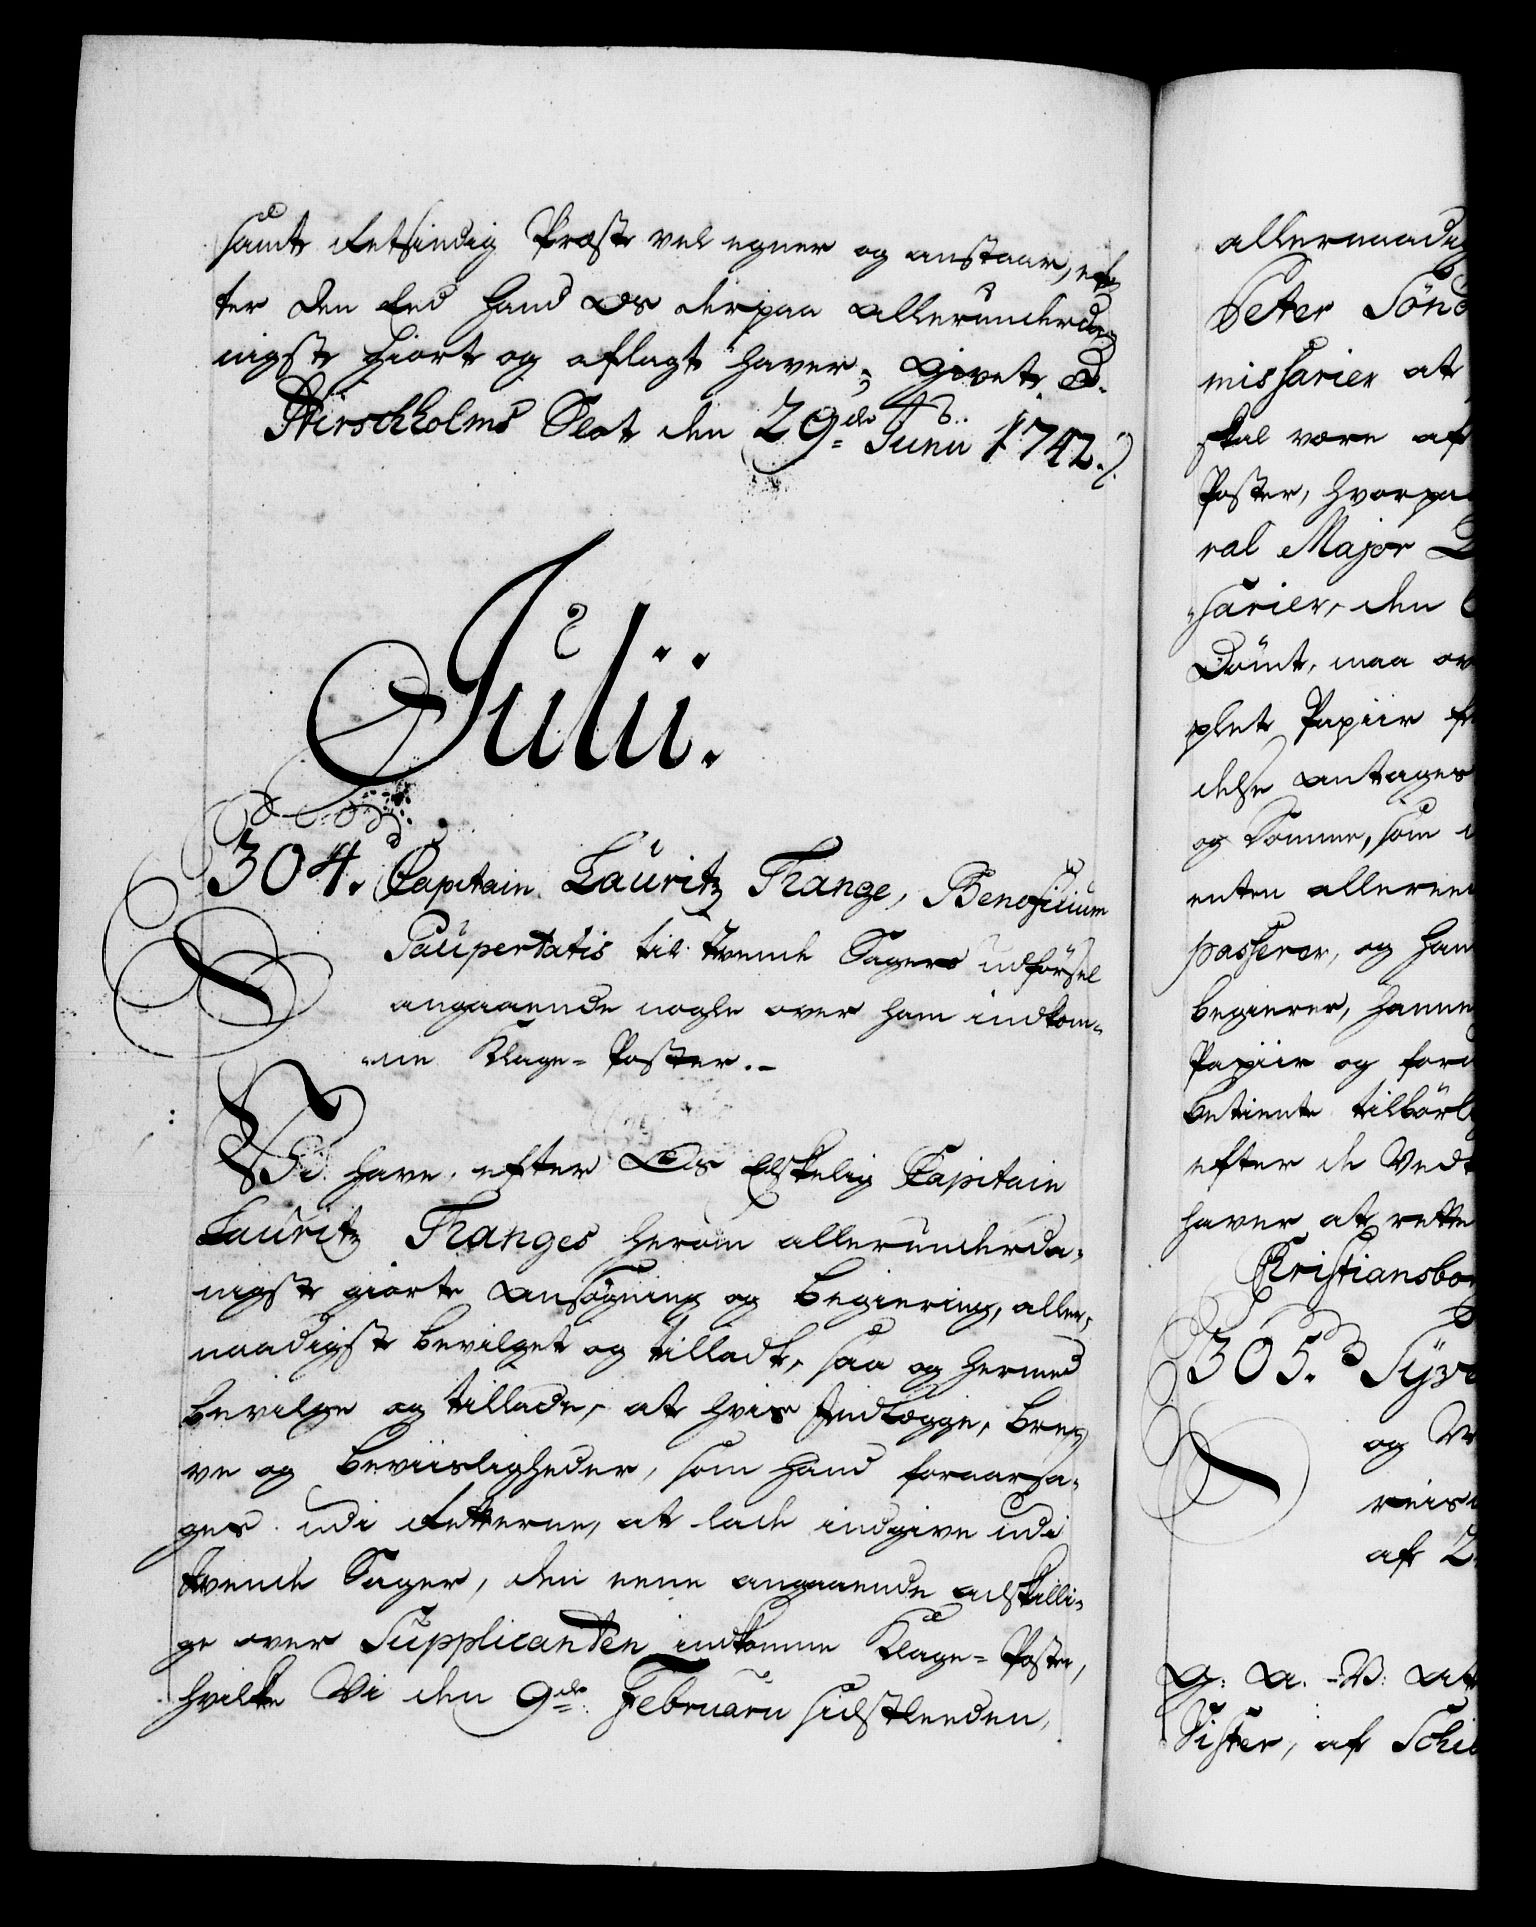 samt retsindig Præst vel egner og anstaar, ef-
ter den Eed hand Os derpaa allerunderda-
nigst giort og aflagt haver; Givet &.
Hirschholms Slot den 29de Junii 1742.
Julii.
304. Capitain Lauritz Frange, Beneficium
Paupertatis til tvende Sagers udførsel
angaaende nogle over ham indkom-
ne Klage-Poster.
Vi have, efter Os Elskelig Capitain
Lauritz Franges herom allerunderda-
nigst giorte Ansøgning og Begiering, aller-
naadigst bevilget og tilladt, saa og hermed
bevilge og tillade, at hvis Indlægge, Bre-
ve og Beviisligheder, som hand foraarsa-
ges udi Retterne, at lade indgive udi
tvende Sager, den eene angaaende adskilli-
ge over Supplicanten indkomne Klage-Poster,
hvilke Vi den 9de Februarii sidstleeden,
allernaadig
Peter Sønd
missarier at
skal være af
Poster, hvorpaa
ral Major D
sarier, den
Dømt, maa ov
plet Papiir f
delse antages
og Domme, som
enten allereed
passerer, og han
begierer, hanne
Papiir og for
betient tilbørl
efter de Vedk
haver at rette
Christiansbor
305. Syv
og
reis
af 2
G: A. V: At
Søster, af Schi